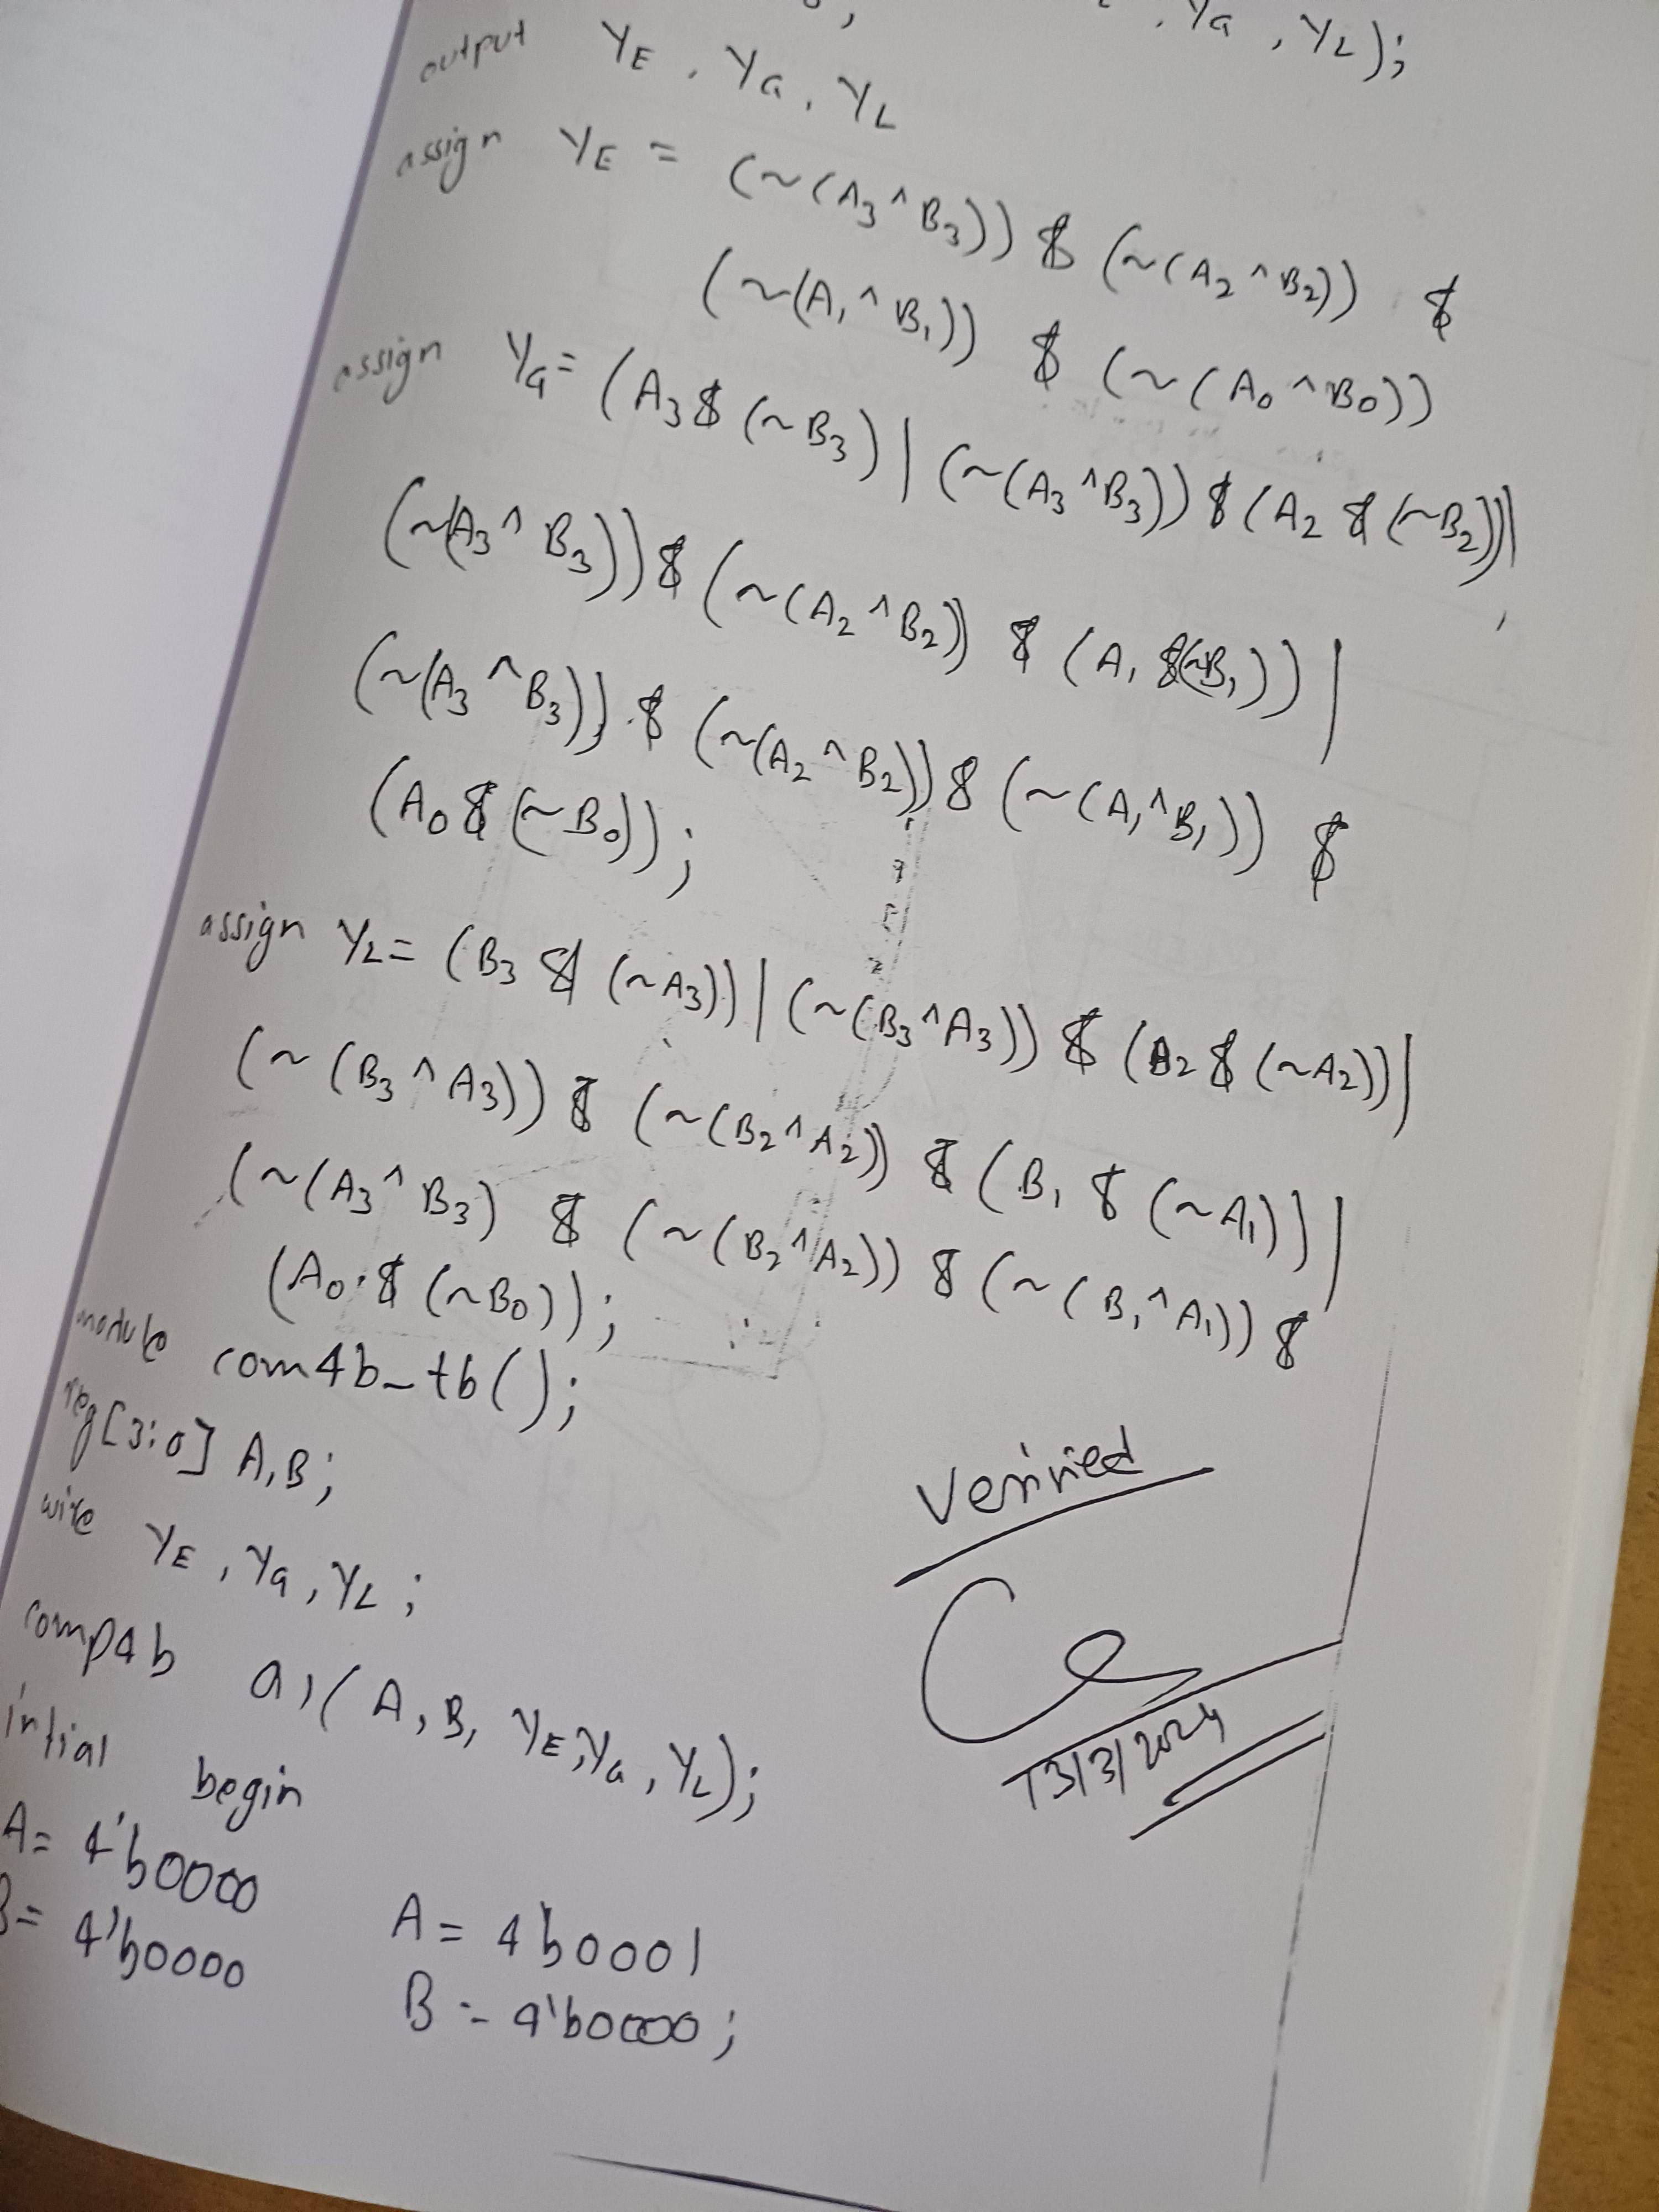 , Ya , YL);
output YE , Ya , YL
assign YE = (~(A3^B3)) & (~(A2^B2)) &
(~(A1^B1)) & (~(A0^B0))
assign Ya= (A3&(~B3) | (~(A3^B3))&(A2 &(~B2))|
(~(A3^B3))&(~(A2^B2)) & (A1 &(~B1)) |
(~(A3^B3)) & (~(A2^B2))&(~(A1^B1)) &
(A0&(~B0));
assign YL= (B3 & (~A3)) | (~(B3^A3)) & (B2&(~A2))|
(~(B3^A3)) & (~(B2^A2)) & (B1 & (~A1)) |
(~(A3^B3) & (~(B2^A2)) & (~(B1^A1)) &
(A0 & (~B0));
module com4b_tb();
reg[3:0] A,B;
wire YE , Ya , YL ;
comp4b a1( A, B, YE,Ya , YL);
intial begin
A= 4'b0000
B= 4'b0000
A= 4b0001
B= 4'b0000;
Verified
13/3/2024